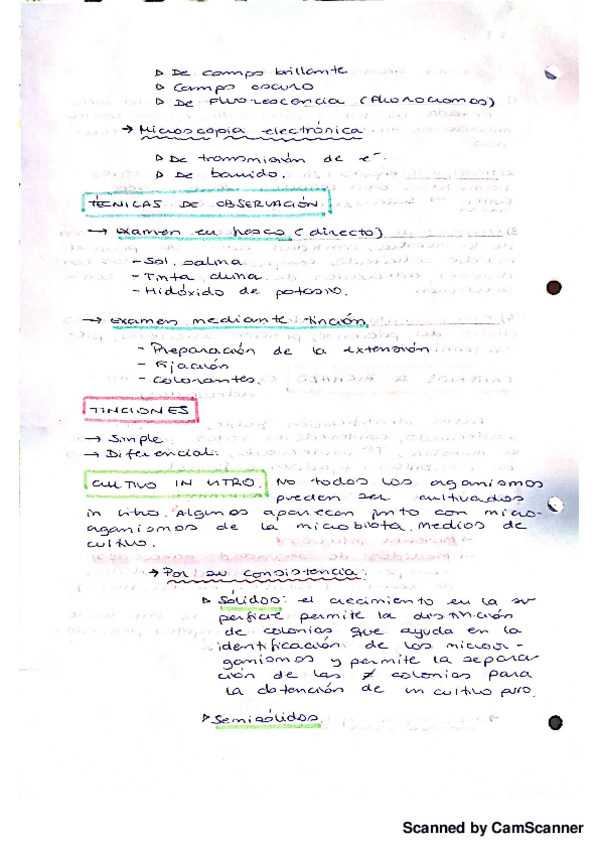 ▷ De campo brillante
▷ Campo oscuro
▷ De fluorescencia (fluorocromos)
→ Microscopía electrónica
▷ De transmisión de e⁻.
▷ De barrido.
TÉCNICAS DE OBSERVACIÓN
→ Examen en fresco (directo)
- Sol. salina
- Tinta china.
- Hidóxido de potasio.
→ Examen mediante tinción
- Preparación de la extensión
- Fijación
- Colorantes.
TINCIONES
→ Simple
→ Diferencial.
CULTIVO IN VITRO. No todos los organismos
pueden ser cultivados
in vitro. Algunos aparecen junto con micro-
organismos de la microbiota. Medios de
cultivo.
→ Por su consistencia:
▷ Sólidos: el crecimiento en la su
perficie permite la distinción
de colonias que ayuda en la
identificación de los microor-
ganismos y permite la separa-
ción de las ≠ colonias para
la obtención de un cultivo puro.
▷ Semisólidos
Scanned by CamScanner